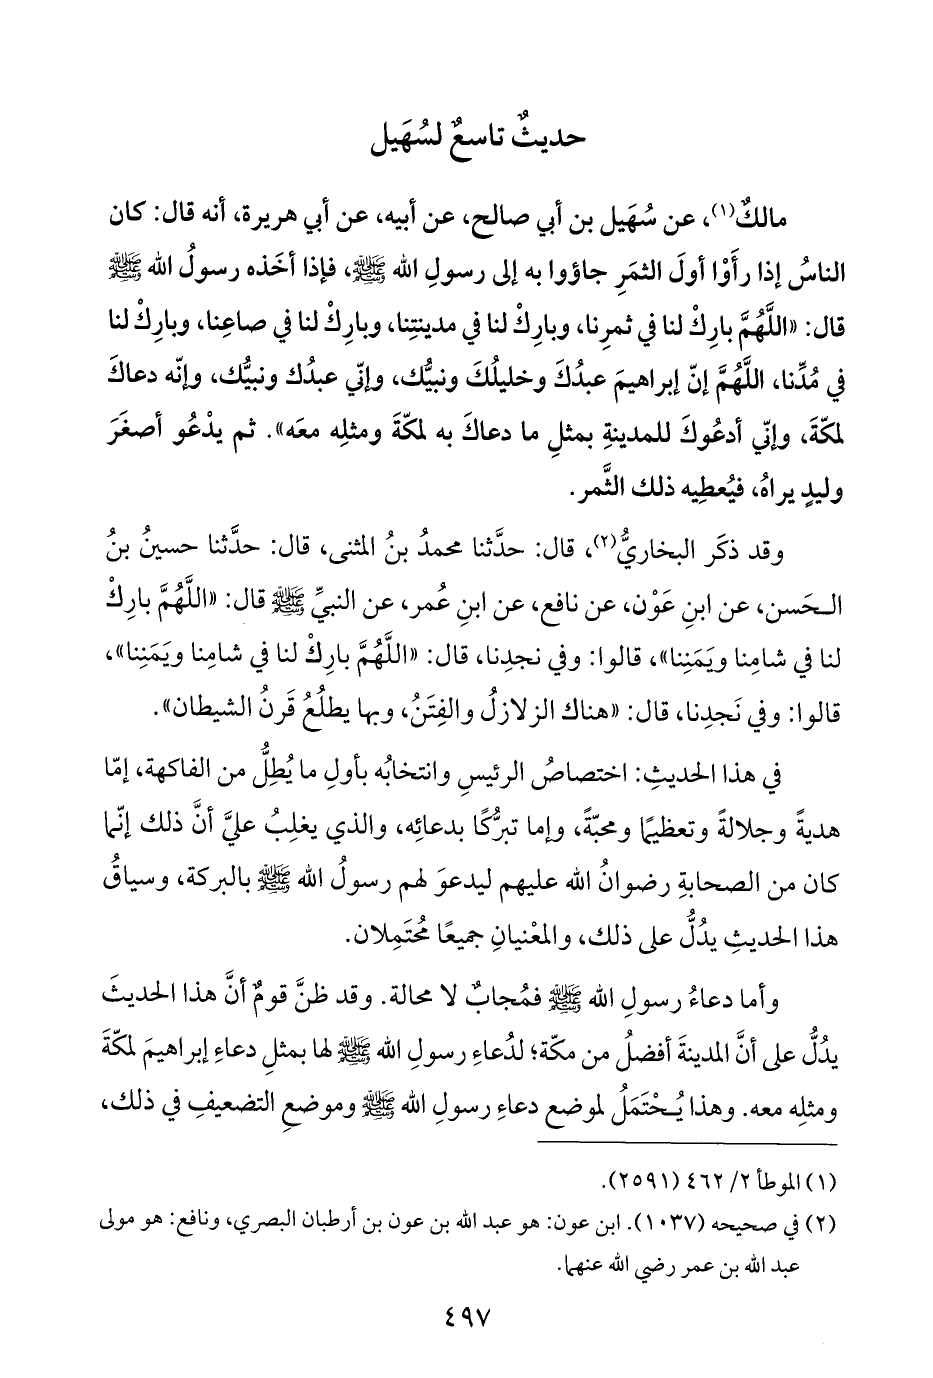 حديثٌ تاسعٌ لسُهَيل
مالكٌ(١)، عن سُهَيل بن أبي صالح، عن أبيه، عن أبي هريرة، أنه قال: كان
الناسُ إذا رأَوْا أولَ الثمَرِ جاؤوا به إلى رسولِ الله ﷺ، فإذا أخَذه رسولُ الله ﷺ
قال: «اللَّهُمَّ بارِكْ لنا في ثمرِنا، وبارِكْ لنا في مدينتِنا، وبارِكْ لنا في صاعِنا، وبارِكْ لنا
في مُدِّنا، اللَّهُمَّ إنّ إبراهيمَ عبدُكَ وخليلُكَ ونبيُّك، وإنّي عبدُك ونبيُّك، وإنّه دعاكَ
لمكّةَ، وإنّي أدعُوكَ للمدينةِ بمثلِ ما دعاكَ به لمكّةَ ومثلِه معَه». ثم يدْعُو أصغَرَ
وليدٍ يراهُ، فيُعطِيه ذلك الثَّمر.
وقد ذكَر البخاريُّ(٢)، قال: حدَّثنا محمدُ بنُ المثنى، قال: حدَّثنا حسينُ بنُ
الحَسن، عن ابنِ عَوْن، عن نافع، عن ابنِ عُمر، عن النبيِّ ﷺ قال: «اللَّهُمَّ بارِكْ
لنا في شامِنا ويَمَنِنا»، قالوا: وفي نجدِنا، قال: «اللَّهُمَّ بارِكْ لنا في شامِنا ويَمَنِنا»،
قالوا: وفي نَجدِنا، قال: «هناك الزلازلُ والفِتَنُ، وبها يطلُعُ قَرنُ الشيطان».
في هذا الحديثِ: اختصاصُ الرئيسِ وانتخابُه بأولِ ما يُطِلُّ من الفاكهة، إمّا
هديةً وجلالةً وتعظيمًا ومحبّةً، وإما تبرُّكًا بدعائِه، والذي يغلِبُ عليَّ أنَّ ذلك إنّما
كان من الصحابةِ رضوانُ الله عليهم ليدعوَ لهم رسولُ الله ﷺ بالبركة، وسياقُ
هذا الحديثِ يدُلُّ على ذلك، والمعْنيانِ جميعًا مُحتَمِلان.
وأما دعاءُ رسولِ الله ﷺ فمُجابٌ لا محالة. وقد ظنَّ قومٌ أنَّ هذا الحديثَ
يدُلُّ على أنَّ المدينةَ أفضلُ من مكّة؛ لدُعاءِ رسولِ الله ﷺ لها بمثلِ دعاءِ إبراهيمَ لمكّةَ
ومثلِه معه. وهذا يُحْتَمَلُ لموضعِ دعاءِ رسولِ الله ﷺ وموضعِ التضعيفِ في ذلك،
(١) الموطأ ٢/ ٤٦٢ (٢٥٩١).
(٢) في صحيحه (١٠٣٧). ابن عون: هو عبد الله بن عون بن أرطبان البصري، ونافع: هو مولى
عبد الله بن عمر رضي الله عنهما.
٤٩٧